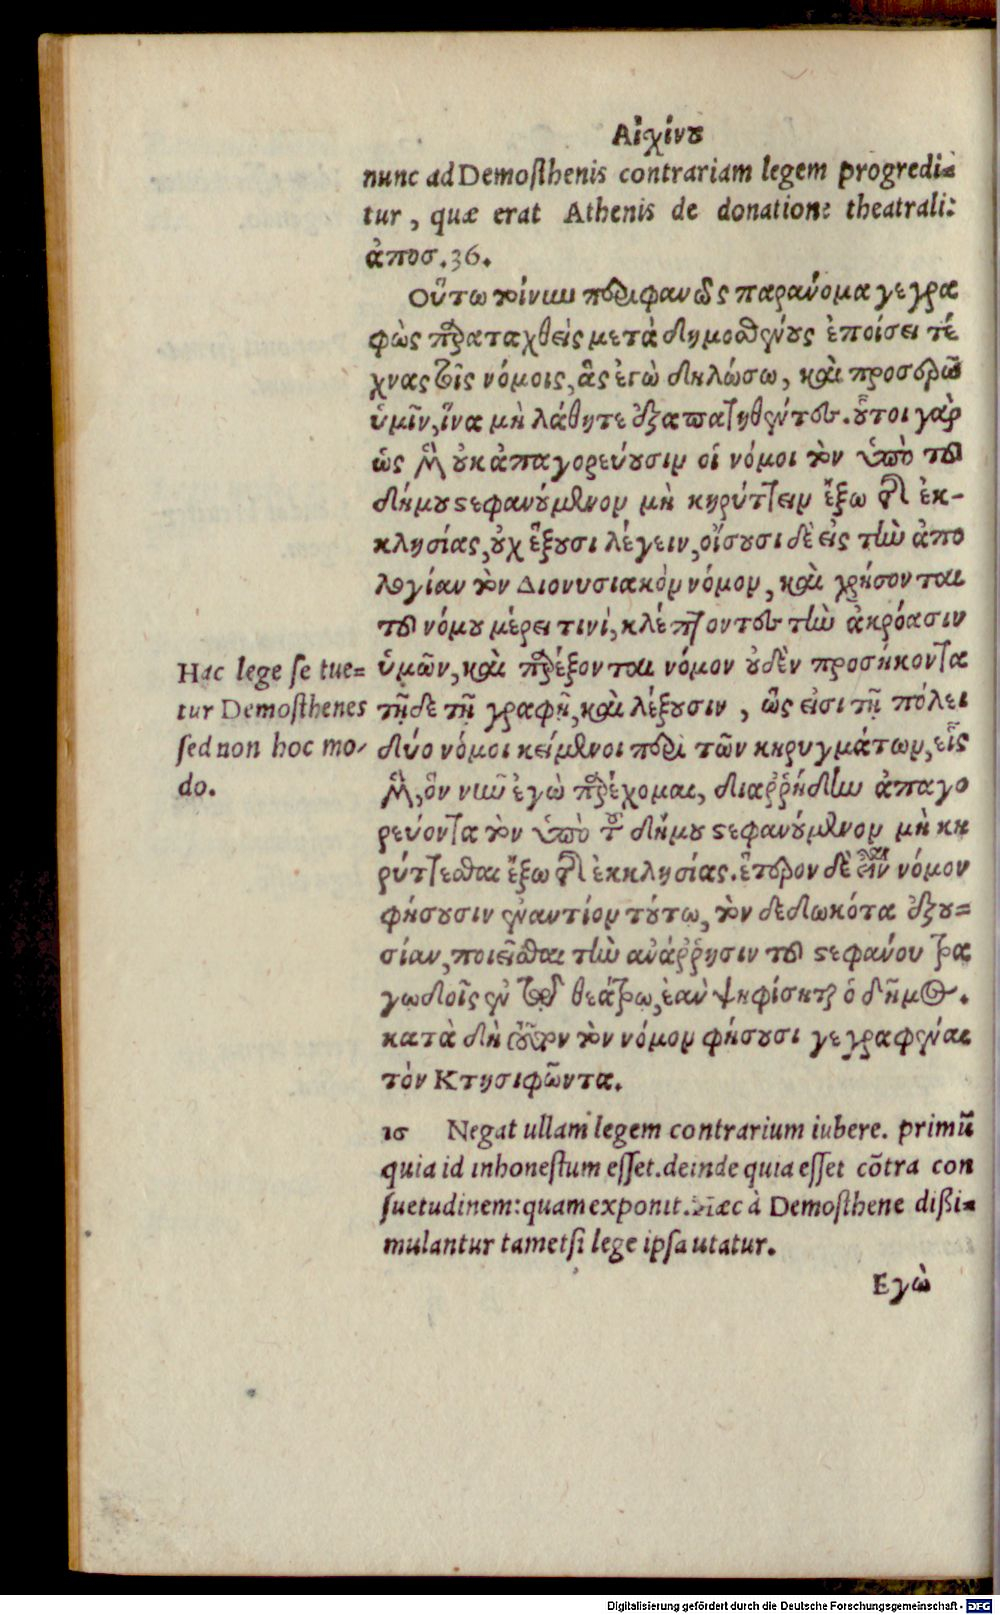 Αἰχίνου
nunc ad Demosthenis contrariam legem progredi-
tur, quæ erat Athenis de donatione theatrali:
ἀποσ. 36.
Οὕτω τοίνυν περιφανῶς παράνομα γεγρα
φὼς παραταχθεὶς μετὰ δημοσθένους ἐποίσει τέ
χνας τοῖς νόμοις, ἃς ἐγὼ δηλώσω, καὶ προσερῶ
ὑμῖν, ἵνα μὴ λάθητε ἐξαπατηθέντες. οὗτοι γὰρ
ὡς μὲν οὐκ ἀπαγορεύουσιν οἱ νόμοι τὸν ὑπὸ τοῦ
δήμου στεφανούμενον μὴ κηρύττειν ἔξω τῆς ἐκ-
κλησίας, οὐχ ἕξουσι λέγειν, οἴσουσι δὲ εἰς τὴν ἀπο
λογίαν τὸν Διονυσιακὸν νόμον, καὶ χρήσονται
τοῦ νόμου μέρει τινὶ, κλέπτοντες τὴν ἀκρόασιν
Hac lege se tue-
tur Demosthenes
sed non hoc mo-
do.
ὑμῶν, καὶ παρέξονται νόμον οὐδὲν προσήκοντα
τῇδε τῇ γραφῇ, καὶ λέξουσιν, ὥς εἰσι τῇ πόλει
δύο νόμοι κείμενοι περὶ τῶν κηρυγμάτων, εἷς
μὲν, ὃν νῦν ἐγὼ παρέχομαι, διαῤῥήδην ἀπαγο
ρεύοντα τὸν ὑπὸ τοῦ δήμου στεφανούμενον μὴ κη
ρύττεσθαι ἔξω τῆς ἐκκλησίας. ἕτερον δὲ εἶναι νόμον
φήσουσιν ἐναντίον τούτῳ, τὸν δεδωκότα ἐξου-
σίαν, ποιεῖσθαι τὴν ἀνάῤῥησιν τοῦ στεφάνου τρα
γωδοῖς ἐν τῷ θεάτρῳ, ἐὰν ψηφίσηται ὁ δῆμος.
κατὰ δὴ τοῦτον τὸν νόμον φήσουσι γεγραφέναι
τὸν Κτησιφῶντα.
16 Negat ullam legem contrarium iubere. primũ
quia id inhonestum esset. deinde quia esset cõtra con
suetudinem: quam exponit. Hæc à Demosthene dißi-
mulantur tametsi lege ipsa utatur.
Εγὼ
Digitalisierung gefördert durch die Deutsche Forschungsgemeinschaft - DFG